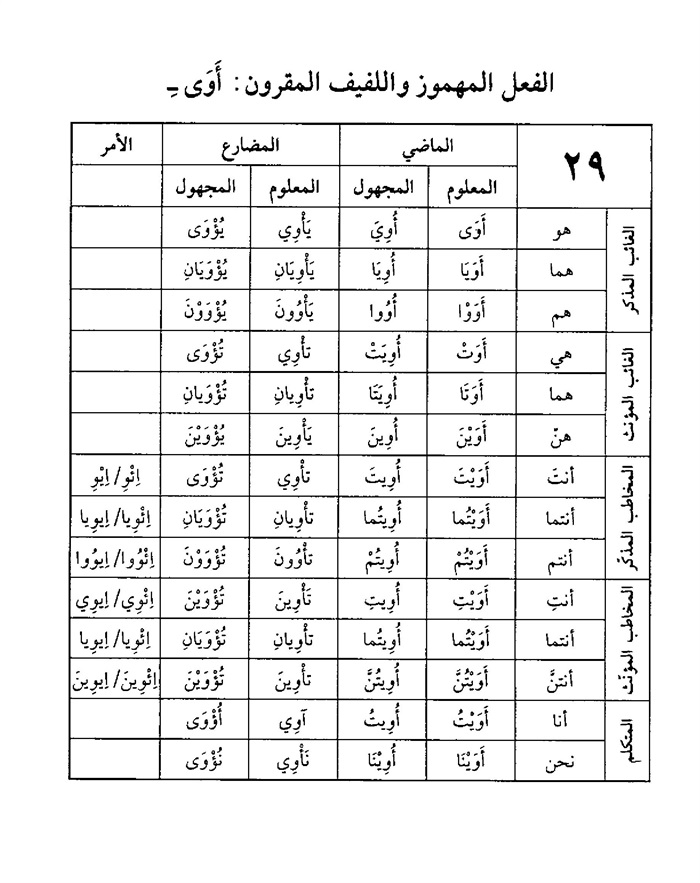 الفعل المهموز واللفيف المقرون: أَوَى ـِ
٢٩ الماضي المضارع الأمر
المعلوم المجهول المعلوم المجهول
الغائب المذكر
هو أَوَى أُوِيَ يَأْوِي يُؤْوَى
هما أَوَيَا أُوِيَا يَأْوِيَانِ يُؤْوَيَانِ
هم أَوَوْا أُوُوا يَأْوُونَ يُؤْوَوْنَ
الغائب المؤنث
هي أَوَتْ أُوِيَتْ تأْوِي تُؤْوَى
هما أَوَتَا أُوِيَتَا تأْوِيانِ تُؤْوَيانِ
هنّ أَوَيْنَ أُوِينَ يَأْوِينَ يُؤْوَيْنَ
المخاطب المذكّر
أنتَ أَوَيْتَ أُوِيتَ تأْوِي تُؤْوَى اِئْوِ/ اِيْوِ
أنتما أَوَيْتُما أُوِيتُما تأْوِيانِ تُؤْوَيَانِ اِئْوِيا/ اِيوِيا
أنتم أَوَيْتُمْ أُوِيتُمْ تأْوُونَ تُؤْوَوْنَ اِئْوُوا/ اِيوُوا
المخاطب المؤنّث
أنتِ أَوَيْتِ أُوِيتِ تَأْوِينَ تُؤْوَيْنَ اِئْوِي/ اِيوِي
أنتما أَوَيْتُما أُوِيتُما تأْوِيانِ تُؤْوَيَانِ اِئْوِيا/ اِيوِيا
أنتنَّ أَوَيْتُنَّ أُوِيتُنَّ تأْوِينَ تُؤْوَيْنَ اِئْوِينَ/ اِيوِينَ
المتكلم
أنا أَوَيْتُ أُوِيتُ آوِي أُؤْوَى
نحن أَوَيْنَا أُوِيْنَا نَأْوِي نُؤْوَى